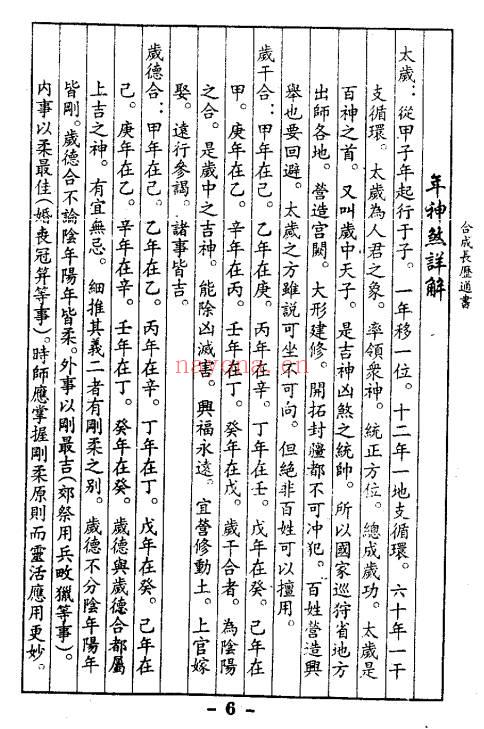 合成長歷通書
年神煞詳解
太歲：從甲子年起行于子。一年移一位。十二年一地支循環。六十年一干
支循環。太歲為人君之象。率領衆神。統正方位。總成歲功。太歲是
百神之首。又叫歲中天子。是吉神凶煞之統帥。所以國家巡狩省地方
出師各地。營造宮闕。大形建修。開拓封疆都不可冲犯。百姓營造興
舉也要回避。太歲之方雖說可坐不可向。但絕非百姓可以擅用。
歲干合：甲年在己。乙年在庚。丙年在辛。丁年在壬。戊年在癸。己年在
甲。庚年在乙。辛年在丙。壬年在丁。癸年在戊。歲干合者。為陰陽
之合。是歲中之吉神。能除凶滅害。興福永遠。宜營修動土。上官嫁
娶。遠行參謁。諸事皆吉。
歲德合：甲年在己。乙年在乙。丙年在辛。丁年在丁。戊年在癸。己年在
己。庚年在乙。辛年在辛。壬年在丁。癸年在癸。歲德與歲德合都屬
上吉之神。有宜無忌。細推其義二者有剛柔之别。歲德不分陰年陽年
皆剛。歲德合不論陰年陽年皆柔。外事以剛最吉（郊祭用兵畋獵等事）。
内事以柔最佳（婚喪冠笄等事）。時師應掌握剛柔原則而靈活應用更妙。
- 6 -
nayona.cn